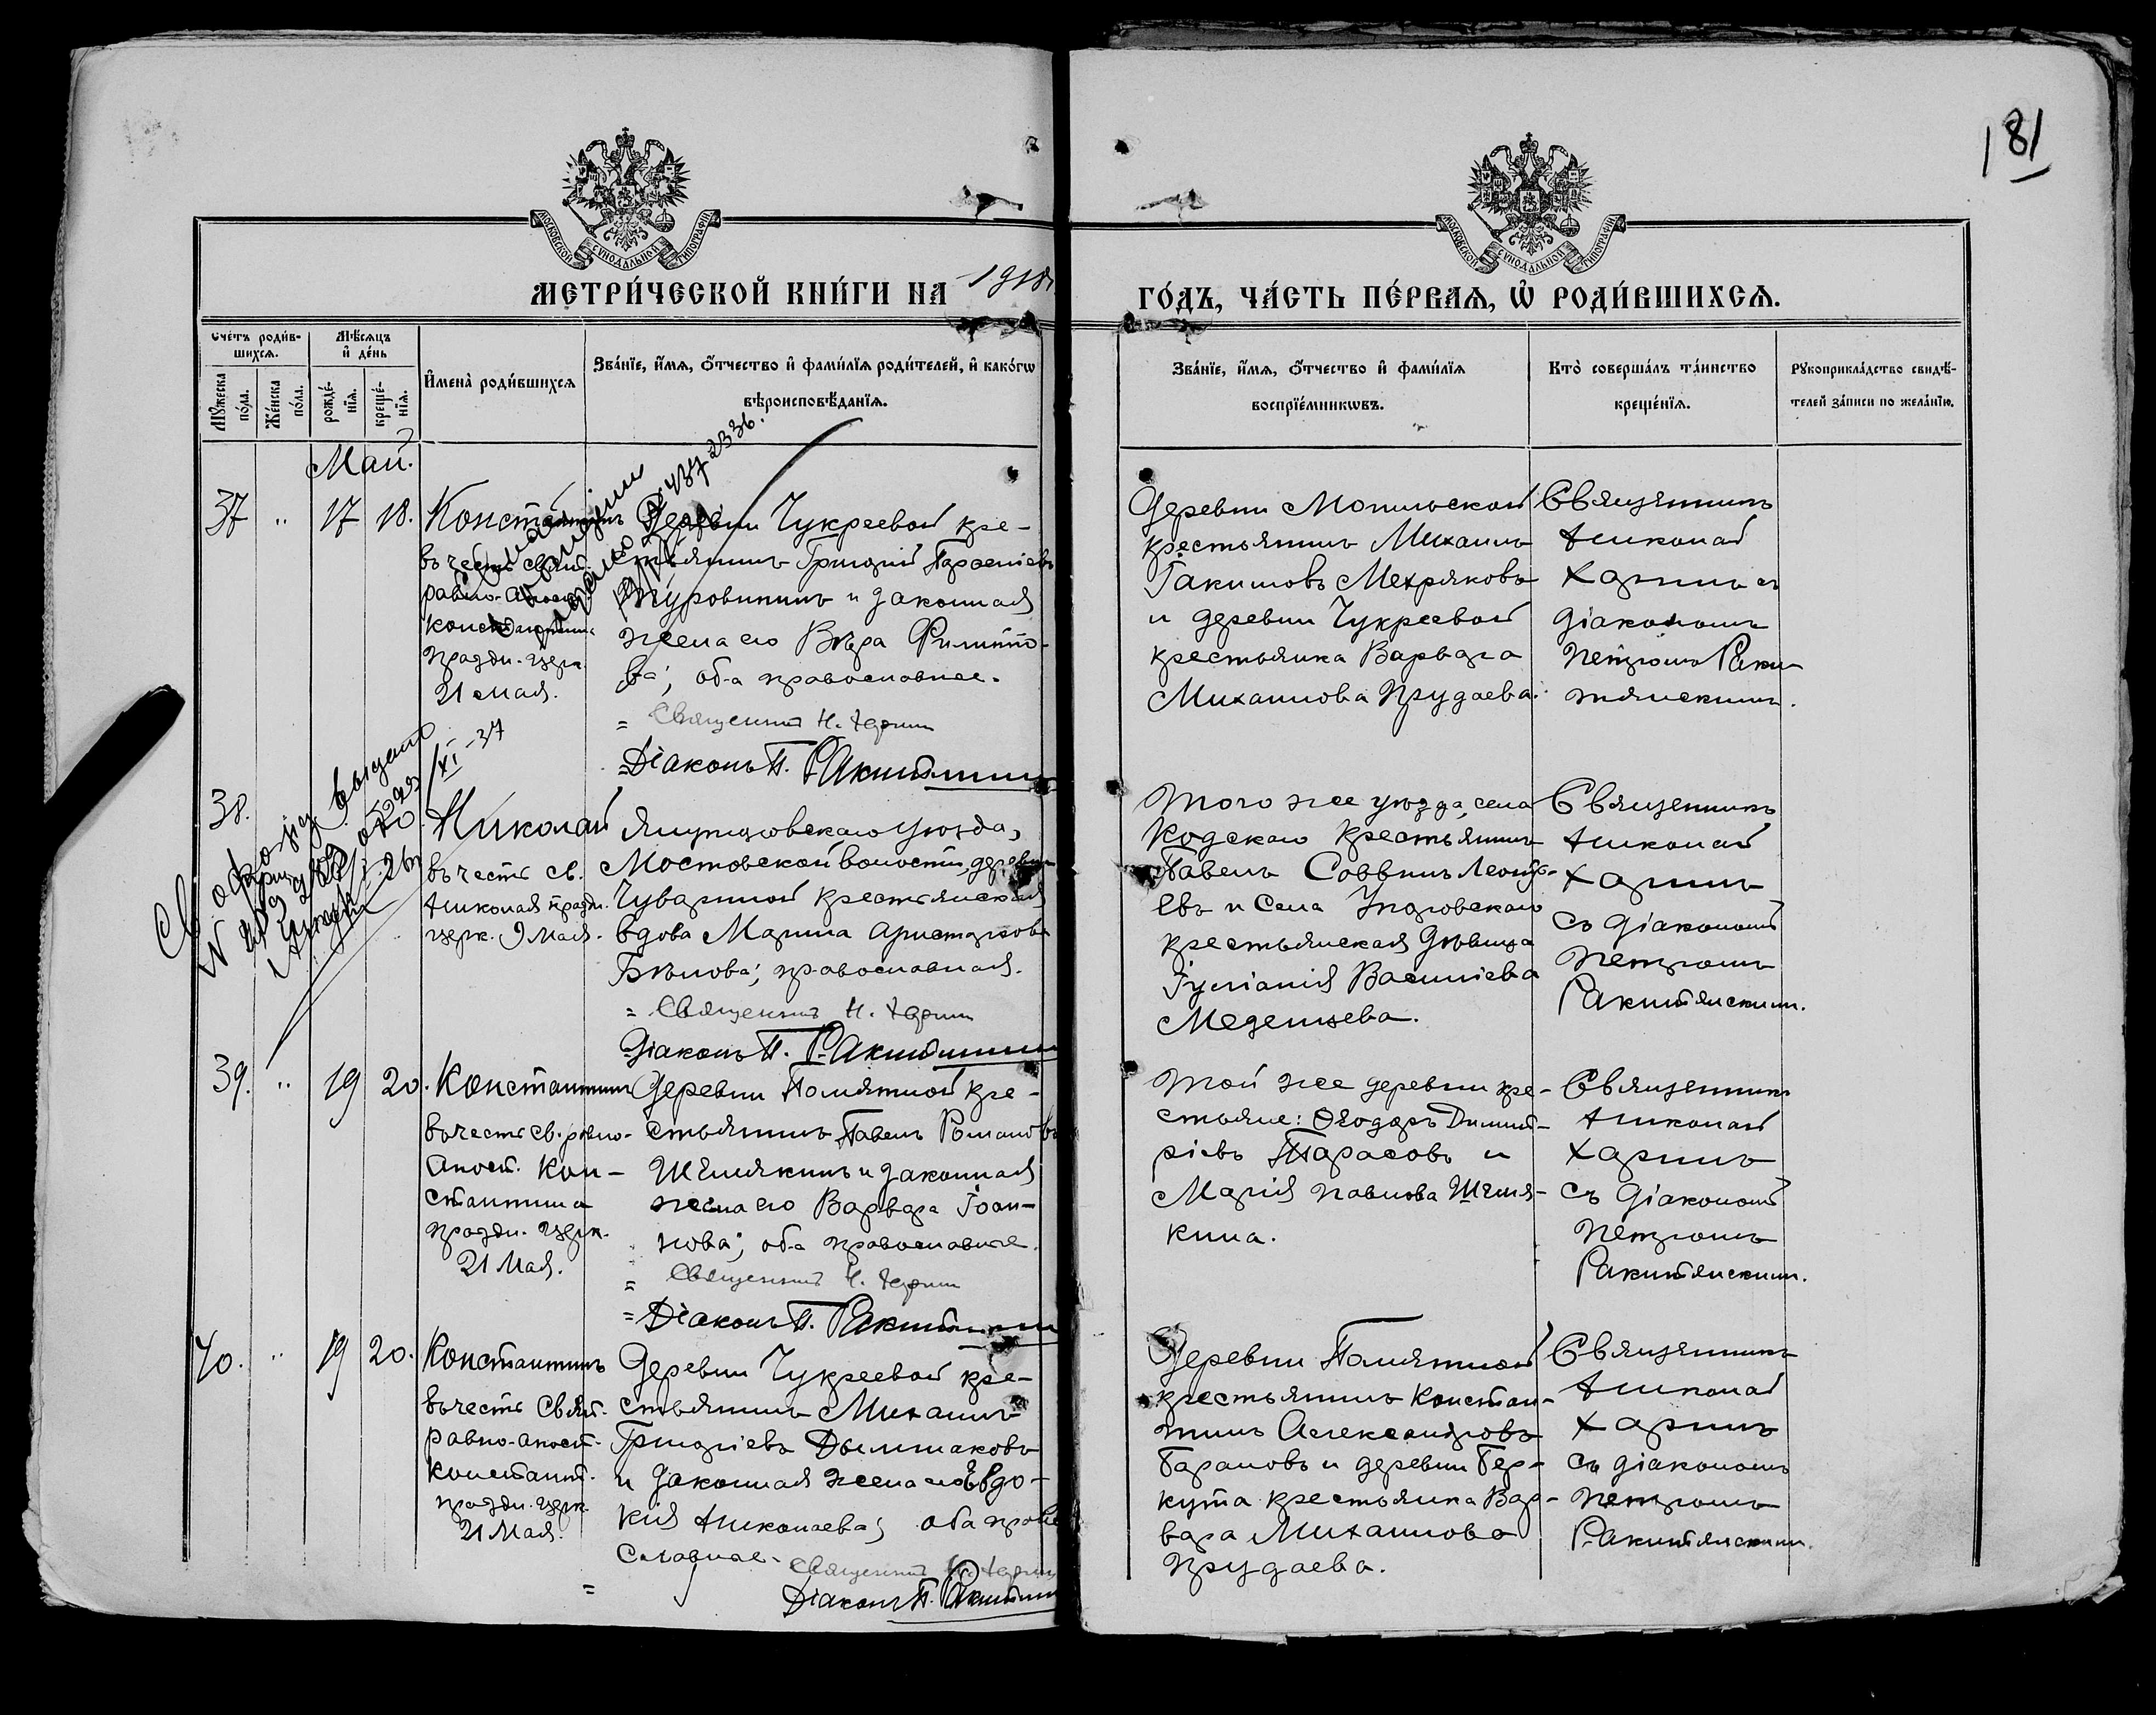 181
МОСКОВСКОЙ СѴНОДАЛЬНОЙ ТИПОГРАФІИ
МОСКОВСКОЙ СѴНОДАЛЬНОЙ ТИПОГРАФІИ
МЕТРИ́ЧЕСКОЙ КНИ́ГИ НА
ГО́ДЪ, ЧА́СТЬ ПЕ́РВАЯ, Ѡ҆ РОДИ́ВШИХСЯ.
Сче́тъ роди́в-
шихся.
Мѣ́сяцъ
и҆ де́нь
Мꙋ́жеска
по́ла.
Же́нска
по́ла.
рожде́-
нїя.
креще́-
нїя.
И҆мена̀ роди́вшихся
Зва́нїе, и҆́мя, ѻ҆́тчество и҆ фами́лїя роди́телей, и҆ како́гѡ
вѣроисповѣ́данїя.
Зва́нїе, и҆́мя, ѻ҆́тчество и҆ фами́лїя
воспрїе́мникѡвъ.
Кто̀ соверша́лъ та́инство
креще́нїя.
Рꙋкоприкла́дство свидѣ́-
телей за́писи по жела́нїю.
Май.
37 " 17 18.
Константинъ
въ честь Свят.
равно-апост.
Константина
праздн. церк.
21 мая.
Деревни Чукреевой кре-
стьянинъ Григорій
и законная
жена его Вѣра Филиппо-
ва; оба православные.
= Священникъ Н. Харинъ
= Діаконъ П. Ракитянскій
Деревни Могильской
крестьянинъ Михаилъ
Іакимовъ Мехряковъ
и деревни Чукреевой
крестьянка Варвара
Михаилова Прудаева.
Священникъ
Николай
Харинъ съ
діакономъ
Петромъ Раки-
тянскимъ.
38.
Николай
въ честь св.
Николая праздн.
церк. 9 Мая.
Ялуторовскаго уѣзда,
Мостовской волости, деревни
крестьянская
вдова Марина Аристархова
Бѣлова; православная.
= Священникъ Н. Харинъ
Діаконъ П. Ракитянскій
Того же уѣзда, села
Кодскаго крестьянинъ
Павелъ Саввинъ Леонть-
евъ и села
крестьянская дѣвица
Іуліанія Василіева
Меденцева.
Священникъ
Николай
Харинъ
съ діакономъ
Петромъ
Ракитянскимъ.
39. " 19 20.
Константинъ
въ честь св. равно-
апост. Кон-
стантина
праздн. церк.
21 Мая.
Деревни Памятной кре-
стьянинъ Павелъ Романовъ
Шемякинъ и законная
жена его Варвара Іоан-
нова; оба православные.
= Священникъ Н. Харинъ
= Діаконъ П. Ракитянскій
Той же деревни кре-
стьяне: Ѳеодоръ Димит-
ріевъ Тарасовъ и
Марія Павлова Шемя-
кина.
Священникъ
Николай
Харинъ
съ діакономъ
Петромъ
Ракитянскимъ.
40. " 19 20.
Константинъ
въ честь Свят.
равно-апост.
Константі.
праздн. церк.
21 Мая.
Деревни Чукреевой кре-
стьянинъ Михаилъ
Григоріевъ Дымшаковъ
и законная жена его Евдо-
кія Николаева; оба право-
славные.
Священникъ Н. Харинъ
= Діаконъ П. Ракитянскій
Деревни Памятной
крестьянинъ Констан-
тинъ Александровъ
Барановъ и деревни Бер-
кута крестьянка Вар-
вара Михаилова
Прудаева.
Священникъ
Николай
Харинъ
съ діакономъ
Петромъ
Ракитянскимъ.